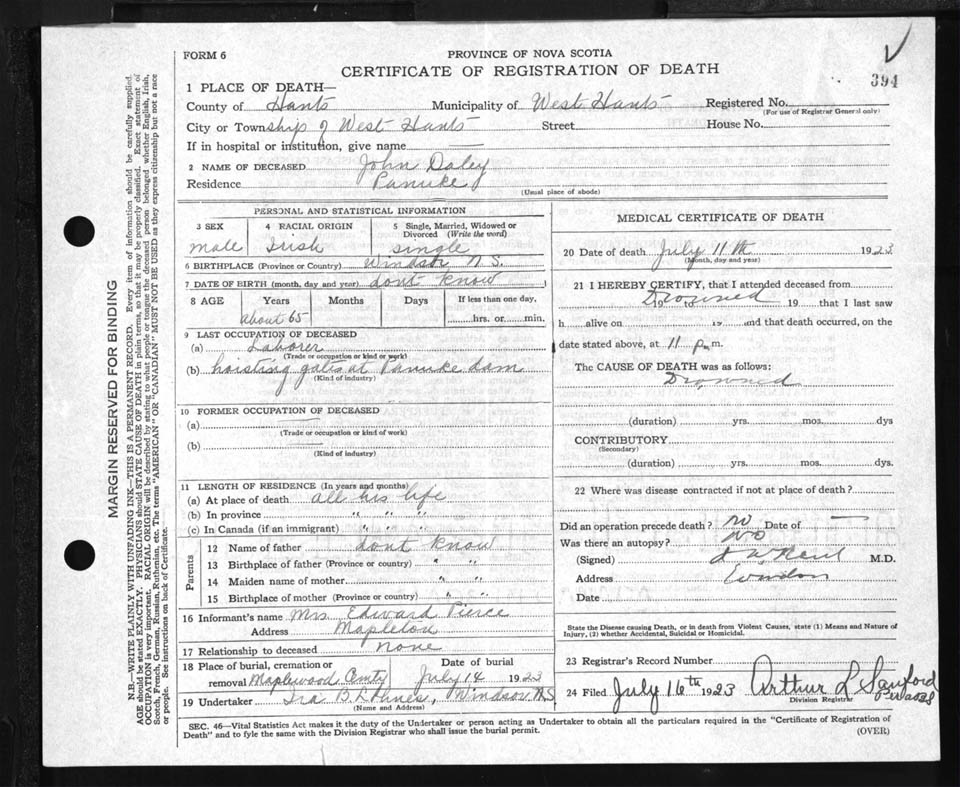 FORM 6
PROVINCE OF NOVA SCOTIA
CERTIFICATE OF REGISTRATION OF DEATH
394
1 PLACE OF DEATH—
County of Hants Municipality of West Hants Registered No.
(For use of Registrar General only)
City or Township of West Hants Street House No.
If in hospital or institution, give name —
2 NAME OF DECEASED John Daley
Residence Panuke
(Usual place of abode)
PERSONAL AND STATISTICAL INFORMATION
3 SEX
male
4 RACIAL ORIGIN
Irish
5 Single, Married, Widowed or Divorced (Write the word)
single
6 BIRTHPLACE (Province or Country) Windsor N.S.
7 DATE OF BIRTH (month, day and year) dont know
8 AGE Years Months Days If less than one day,
about 65 hrs. or min.
9 LAST OCCUPATION OF DECEASED
(a) Laborer
(Trade or occupation or kind or work)
(b) hoisting gates at Panuke dam
(Kind of industry)
10 FORMER OCCUPATION OF DECEASED
(a)
(Trade or occupation or kind of work)
(b)
(Kind of industry)
11 LENGTH OF RESIDENCE (In years and months)
(a) At place of death all his life
(b) In province " " "
(c) In Canada (if an immigrant) " " "
Parents
12 Name of father dont know
13 Birthplace of father (Province or country) " "
14 Maiden name of mother " "
15 Birthplace of mother (Province or country) " "
16 Informant's name Mrs. Edward Pierce
Address Mapleton
17 Relationship to deceased none
18 Place of burial, cremation or Date of burial
removal Maplewood Cmty July 14 1923
19 Undertaker Ira B. Windsor, N.S
(Name and Address)
MEDICAL CERTIFICATE OF DEATH
20 Date of death July 11th 1923
(Month, day and year)
21 I HEREBY CERTIFY, that I attended deceased from
Drowned 19 to 19 that I last saw
h alive on 19 and that death occurred, on the
date stated above, at 11 p.m.
The CAUSE OF DEATH was as follows:
Drowned
(duration) yrs. mos. dys
CONTRIBUTORY
(Secondary)
(duration) yrs. mos. dys.
22 Where was disease contracted if not at place of death?
Did an operation precede death? no Date of —
Was there an autopsy? no
(Signed) M.D.
Address
Date
State the Disease causing Death, or in death from Violent Causes, state (1) Means and Nature of
Injury, (2) whether Accidental, Suicidal or Homicidal.
23 Registrar's Record Number
24 Filed July 16th 1923 Arthur L Sanford
Division Registrar
SEC. 46—Vital Statistics Act makes it the duty of the Undertaker or person acting as Undertaker to obtain all the particulars required in the "Certificate of Registration of
Death" and to fyle the same with the Division Registrar who shall issue the burial permit.
(OVER)
MARGIN RESERVED FOR BINDING
N.B.—WRITE PLAINLY WITH UNFADING INK—THIS IS A PERMANENT RECORD. Every item of information should be carefully supplied.
AGE should be stated EXACTLY. PHYSICIANS should STATE CAUSE OF DEATH in plain terms, so that it may be properly classified. Exact statement of
OCCUPATION is very important. RACIAL ORIGIN will be described by stating to what people or tongue the deceased person belonged whether English, Irish,
Scotch, French, German, Russian, Ruthenian, etc. The terms "AMERICAN" or "CANADIAN" MUST NOT BE USED as they express citizenship but not a race
or people. See instructions on back of Certificate.